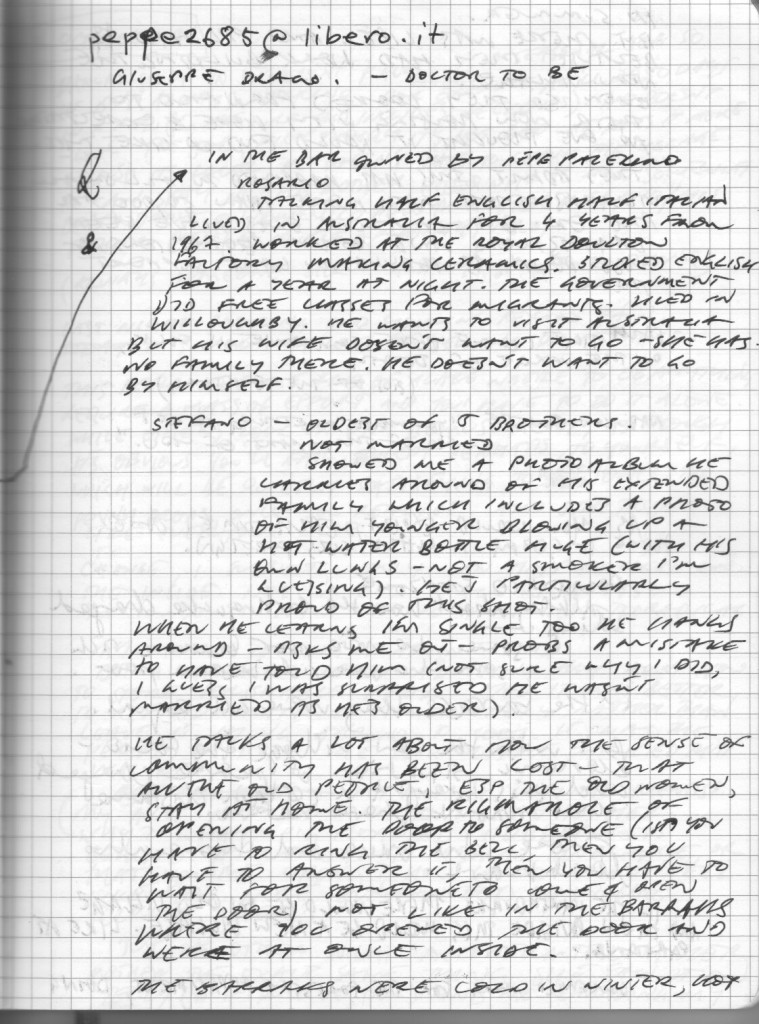 peppe2685@libero.it
GIUSEPPE DRAGO. — DOCTOR TO BE
IN THE BAR OWNED BY PEPE PALERMO
ROSARIO
TALKING HALF ENGLISH HALF ITALIAN
LIVED IN AUSTRALIA FOR 4 YEARS FROM
1967. WORKED AT THE ROYAL DOULTON
FACTORY MAKING CERAMICS. STUDIED ENGLISH
FOR A YEAR AT NIGHT. THE GOVERNMENT
&
DID FREE CLASSES FOR MIGRANTS. LIVED IN
WILLOUGHBY. HE WANTS TO VISIT AUSTRALIA
BUT HIS WIFE DOESN'T WANT TO GO - SHE HAS
NO FAMILY THERE. HE DOESN'T WANT TO GO
BY HIMSELF.
STEFANO — OLDEST OF 5 BROTHERS.
NOT MARRIED
SHOWED ME A PHOTO ALBUM HE
CARRIES AROUND OF HIS EXTENDED
FAMILY WHICH INCLUDES A PHOTO
OF HIM YOUNGER BLOWING UP A
HOT WATER BOTTLE HUGE (WITH HIS
OWN LUNGS - NOT A SMOKER I'M
GUESSING). HE'S PARTICULARLY
PROUD OF THIS SHOT.
WHEN HE LEARNS I'M SINGLE TOO HE HANGS
AROUND - ASKS ME OUT - PROBS A MISTAKE
TO HAVE TOLD HIM (NOT SURE WHY I DID,
I GUESS I WAS SURPRISED HE WASN'T
MARRIED AS HE'S OLDER).
HE TALKS A LOT ABOUT HOW THE SENSE OF
COMMUNITY HAS BEEN LOST - THAT
ALL THE OLD PEOPLE, ESP THE OLD WOMEN,
STAY AT HOME. THE RIGMAROLE OF
OPENING THE DOOR TO SOMEONE (1ST YOU
HAVE TO RING THE BELL, THEN YOU
HAVE TO ANSWER IT, THEN YOU HAVE TO
WAIT FOR SOMEONE TO COME & OPEN
THE DOOR) NOT LIKE IN THE BARRAKS
WHERE YOU OPENED THE DOOR AND
WERE AT ONCE INSIDE.
THE BARRAKS WERE COLD IN WINTER, HOT